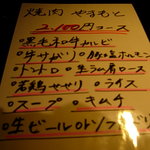 焼肉 やまもと
2,100円コース
●黒毛和牛カルビ
●牛サガリ ●豚塩ホルモン
●トントロ ●生ラム肩ロース
●若鶏せせり ●ライス
●スープ ●キムチ
●生ビール or ソフト